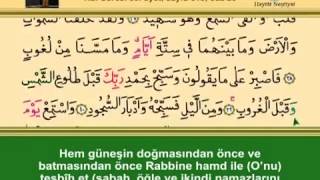 Hayrât Neşriyat
وَالْاَرْضَ وَمَا بَيْنَهُمَا فِى سِتَّةِ اَيَّامٍ وَمَا مَسَّنَا مِنْ لُغُوبٍ
فَاصْبِرْ عَلٰى مَا يَقُولُونَ وَسَبِّحْ بِحَمْدِ رَبِّكَ قَبْلَ طُلُوعِ الشَّمْسِ
وَقَبْلَ الْغُرُوبِ ﴿٣٩﴾ وَمِنَ الَّيْلِ فَسَبِّحْهُ وَاَدْبَارَ السُّجُودِ ﴿٤٠﴾ وَاسْتَمِعْ يَوْمَ
Hem güneşin doğmasından önce ve
batmasından önce Rabbine hamd ile (O'nu)
tesbîh et (sabah, öğle ve ikindi namazlarını